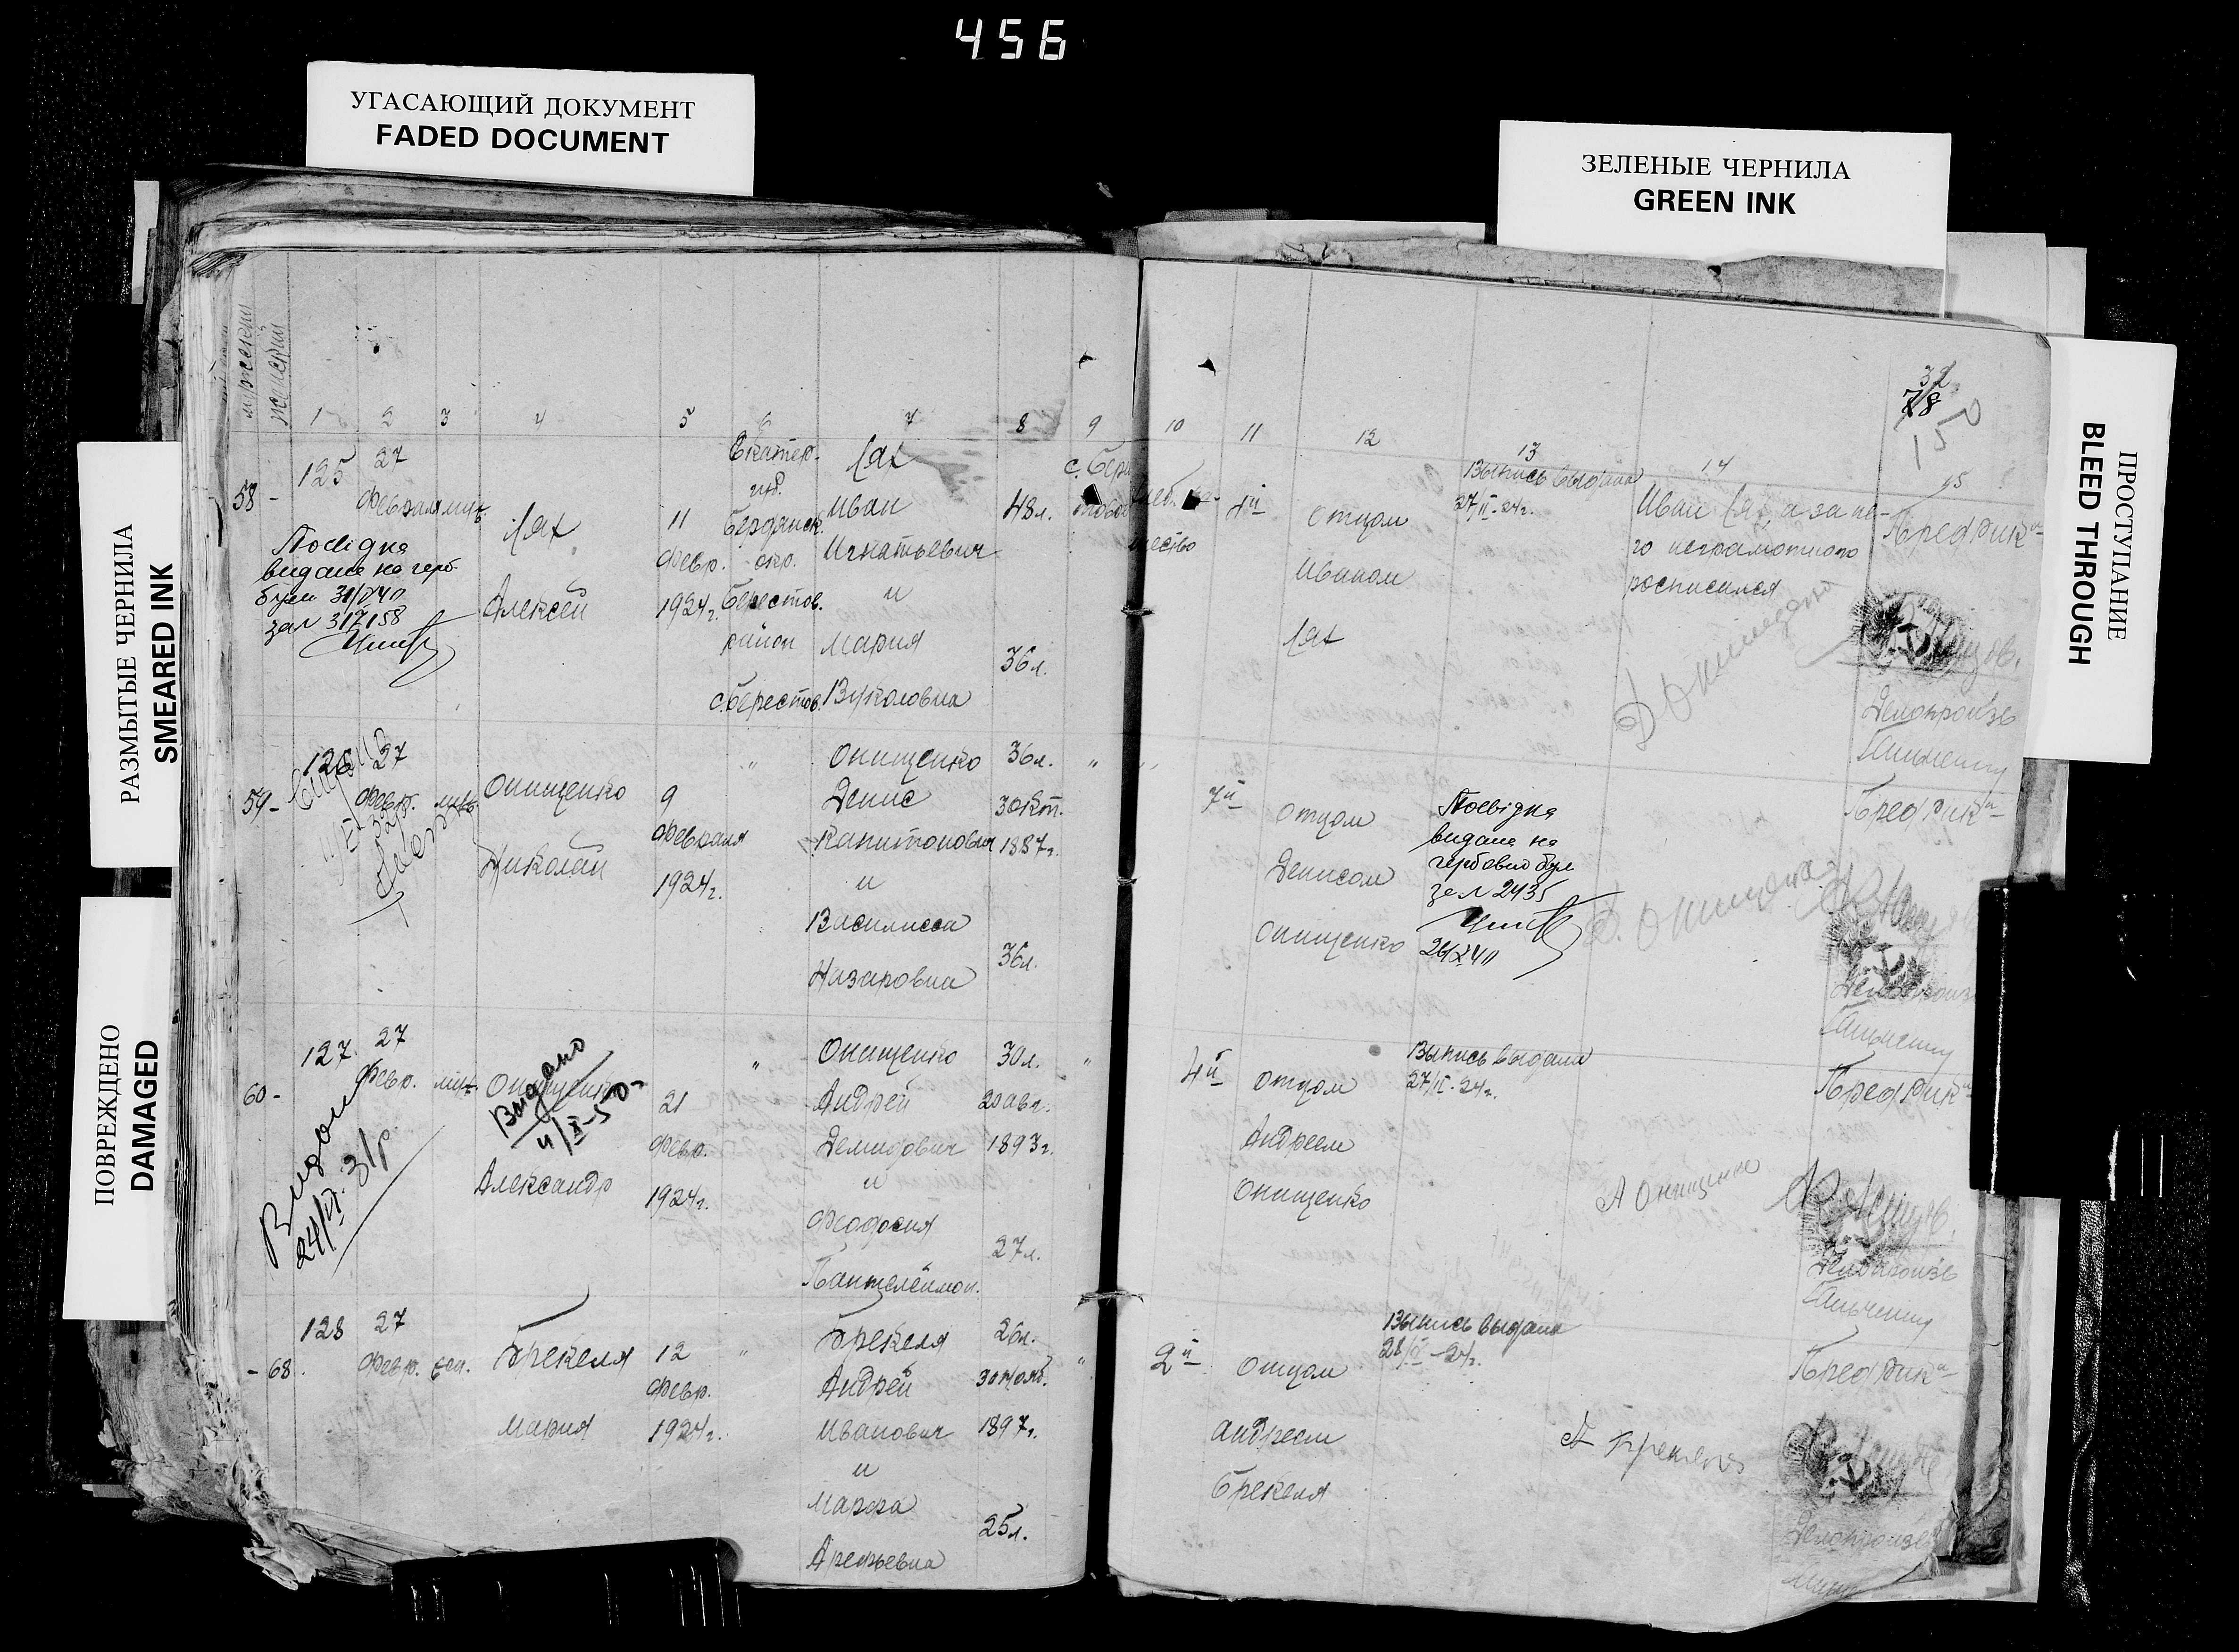 456
УГАСАЮЩИЙ ДОКУМЕНТ
FADED DOCUMENT
ЗЕЛЕНЫЕ ЧЕРНИЛА
GREEN INK
РАЗМЫТЫЕ ЧЕРНИЛА
SMEARED INK
ПОВРЕЖДЕНО
DAMAGED
ПРОСТУПАНИЕ
BLEED THROUGH
мужской
женский
1 2 3 4 5 6 7 8 9 10 11 12 13 14 15
32
78
58 -
125
27
Февраля
муж.
Лях
Алексей
11
Февр.
1924г.
Екатер.
губ.
Бердянск.
окр.
Берестов.
район
с. Берестов.
Лях
Иван
Игнатьевич
и
Мария
Вуколовна
48л.
36л.
Посвідка
видана на герб.
бум 31/V 40
за № 317158
4й
отцом
Иваном
Лях
Выпись выдана
27/II-24г.
Иван Лях, а за не-
го неграмотного
росписался
Пред Рика
Делопроизв
59 -
126
27
Февр.
муж.
Онищенко
Николай
9
Февраля
1924г.
"
Онищенко
Денис
Капитонович
и
Василисса
Назаровна
36л.
30 кт.
1887г.
36л.
"
7й
отцом
Денисом
Онищенко
Посвідка
видана на
гербовій бум
за № 2435
26/X 40
Д. Онищенко
Пред Рика
Делопроизв
60 -
127.
27
Февр.
муж.
Онищенко
Александр
Выдано
11/X-50
Видано
24/VI 31р
21
Февр.
1924г.
"
Онищенко
Андрей
Демидович
и
Феодосия
Пантелеймон.
30л.
20 авг.
1893г.
27л.
"
4й
отцом
Андреем
Онищенко
Выпись выдана
27/II-24г.
А Онищенко
Пред Рика
Делопроизв
- 68.
128
27
Февр.
жен.
Брекеля
Мария
12
Февр.
1924г.
"
Брекеля
Андрей
Иванович
и
Марфа
Арефьевна
26л.
30 нояб.
1897г.
25л.
"
2й
отцом
Андреем
Брекеля
Выпись выдана
А Брекеля
Пред Рика
Делопроизв